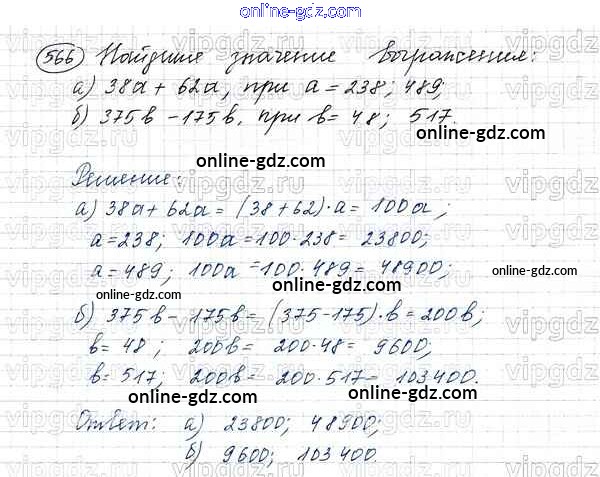 online-gdz.com
566 Найдите значение выражения:
а) 38a + 62a, при a = 238; 489;
б) 375b - 175b, при b = 48; 517.
online-gdz.com
Решение:
а) 38a + 62a = (38 + 62)·a = 100a;
a = 238; 100a = 100·238 = 23800;
a = 489; 100a = 100·489 = 48900;
online-gdz.com
online-gdz.com
online-gdz.com
б) 375b - 175b = (375-175)·b = 200b;
b = 48; 200b = 200·48 = 9600;
b = 517; 200b = 200·517 = 103400.
online-gdz.com
Ответ: а) 23800; 48900;
б) 9600; 103400.
online-gdz.com